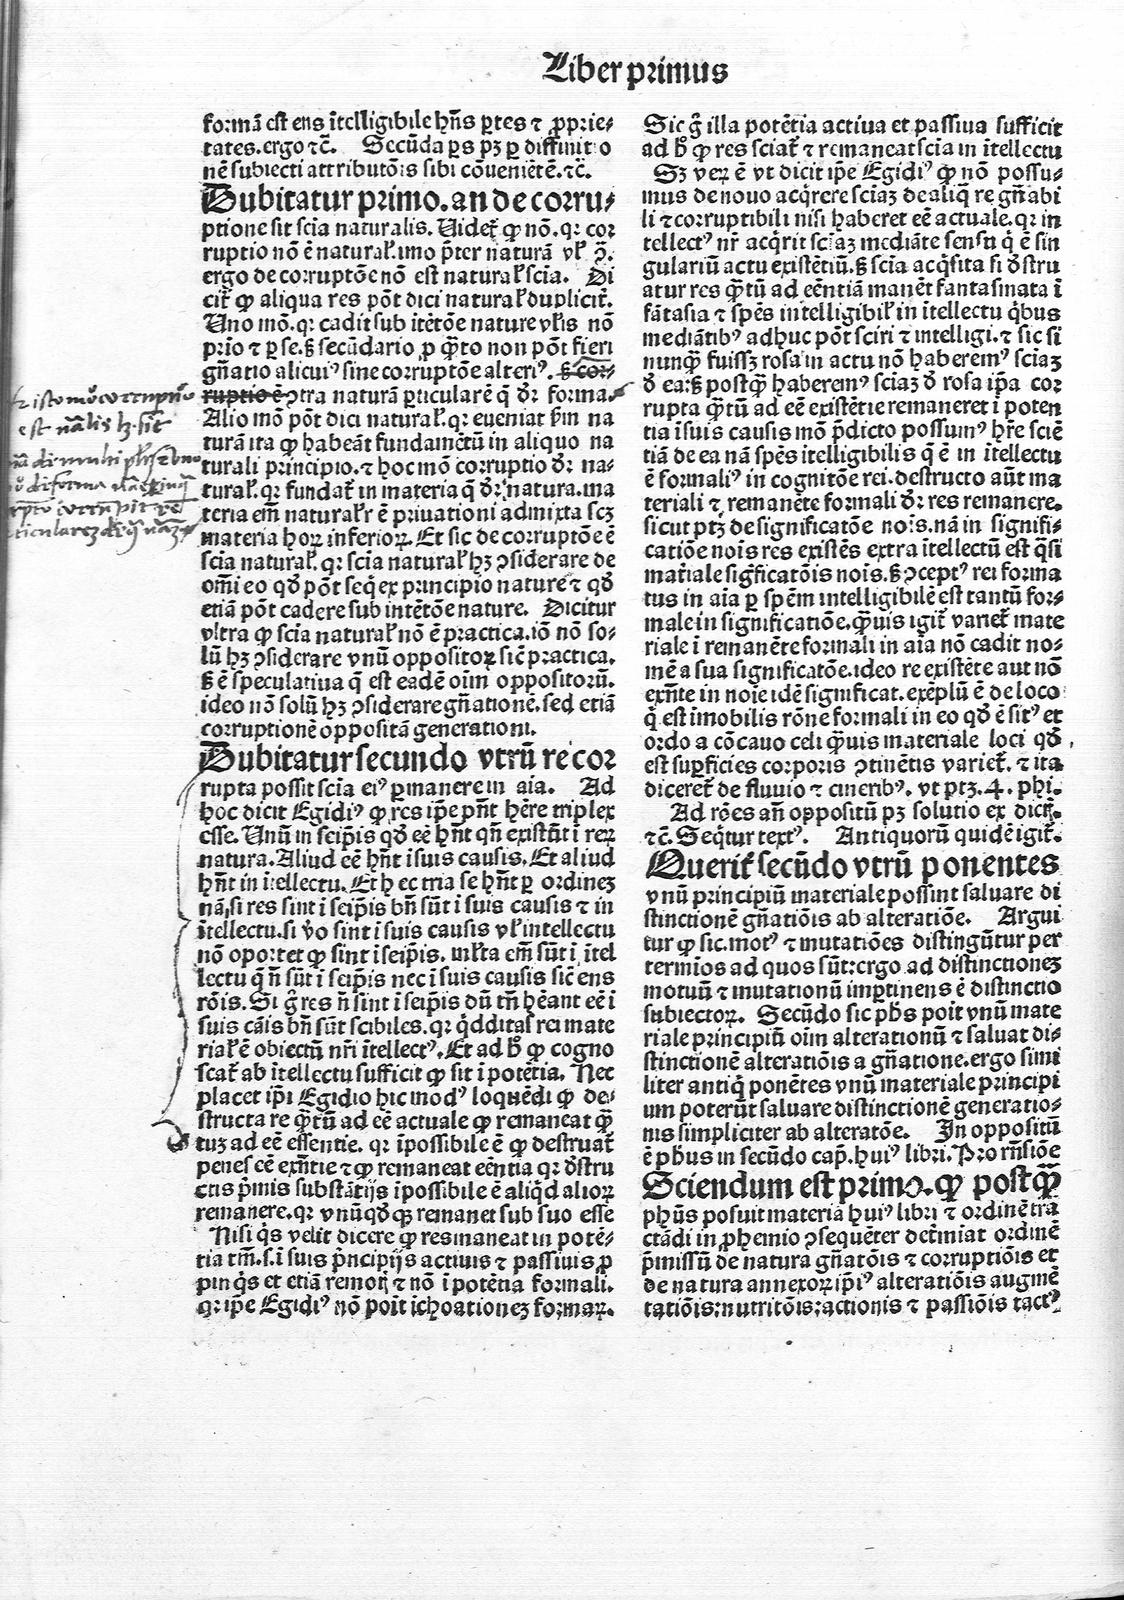 Liber primus
formā est ens ītelligibile hn̄s ꝑtes ⁊ ꝓprie-
tates. ergo ⁊c̄. Secūda ꝑs pꝫ ꝑ diffinitio
nē subiecti attributōis sibi cōueniētē. ⁊c̄.
Dubitatur primo. an de corru-
ptione sit scīa naturalis. Uidet᷑ ꝙ nō. qꝛ cor
ruptio nō ē natural᷑. imo p̄ter naturā vl᷑ ꝯ̄.
ergo de corruptōe nō est natural᷑ scīa. Di
cit᷑ ꝙ aliqua res pōt dici natural᷑ duplicit᷑.
Uno mō. qꝛ cadit sub ītētōe nature vl᷑is nō
prīo ⁊ ꝑ se. sꝫ secūdario ꝓ q̄ꝫto non pōt fieri
gn̄atio alicuiꝰ sine corruptōe alteriꝰ. sꝫ cor-
ruptio ē ꝯtra naturā ꝑticularē q̄ dꝛ forma.
Alio mō pōt dici natural᷑. qꝛ eueniat ẜm na
turā ita ꝙ habeāt fundamētū in aliquo na
turali principio. ⁊ hoc mō corruptio dꝛ na-
tural᷑. qꝛ fundat᷑ in materia q̄ dꝛ natura. ma
teria em̄ natural᷑r ē priuationi admixta scꝫ
materia hoꝝ inferioꝝ. Et sic de corruptōe ē
scīa natural᷑. qꝛ scīa natural᷑ hꝫ ꝯsiderare de
om̄i eo qd̄ pōt seq̄ ex principio nature ⁊ qd̄
etiā pōt cadere sub intētōe nature. Dicitur
vltra ꝙ scīa natural᷑ nō ē practica. iō nō so-
lū hꝫ ꝯsiderare vnū oppositoꝝ sic̄ practica.
sꝫ ē speculatiua q̄ est eadē oīm oppositorū.
ideo nō solū hꝫ ꝯsiderare gn̄ationē. sed etiā
corruptionē oppositā generationi.
Dubitatur secundo vtrū re cor
rupta possit scīa eiꝰ ꝑmanere in aīa. Ad
hoc dicit Egidiꝰ ꝙ res ip̄e pn̄t hēre triplex
esse. Unū in seip̄is qd̄ eē hn̄t qn̄ existūt ī reꝝ
natura. Aliud eē hn̄t ī suis causis. Et aliud
hn̄t in ītellectu. Et hec tria se hn̄t ꝑ ordinez
nā si res sint ī seip̄is bn̄ sūt ī suis causis ⁊ in
ītellectu. si v̄o sint ī suis causis vl᷑ intellectu
nō oportet ꝙ sint ī seip̄is. ml᷑ta em̄ sūt ī ītel
lectu q̄ n̄ sūt ī seip̄is nec ī suis causis sic̄ ens
rōis. Si g̊ res n̄ sint ī seip̄is dū tn̄ hēant eē ī
suis cāis bn̄ sūt scibiles. qꝛ q̇dditas rei mate
rial᷑ ē obiectū nr̄i ītellectꝰ. Et ad h̄ ꝙ cogno
scat᷑ ab ītellectu sufficit ꝙ sit ī potētia. Nec
placet ip̄i Egidio hic modꝰ loquēdi ꝙ de-
structa re q̄ꝫtū ad eē actuale ꝙ remaneat q̄ꝫ
tuꝫ ad eē essentie. qꝛ īpossibile ē ꝙ destruat᷑
penes eē exn̄tie ⁊ ꝙ remaneat eēntia qꝛ dstru
ctis p̄mis substātijs īpossibile ē aliq̇d alioꝝ
remanere. qꝛ vnūqd̄qꝫ remanet sub suo esse
Nisi q̇s velit dicere ꝙ res maneat in potē-
tia tm̄. s. ī suis p̄ncipijs actiuis ⁊ passiuis ꝓ
pinq̇s et etiā remotį ⁊ nō ī potētia formali.
qꝛ ip̄e Egidiꝰ nō poīt ichoationez formaꝝ.
Sic g̊ illa potētia actiua et passiua sufficit
ad h̄ ꝙ res sciat᷑ ⁊ remaneat scīa in ītellectu
Sꝫ veꝝ ē vt dicit ip̄e Egidiꝰ ꝙ nō possu-
mus de nouo acq̇rere sciaꝫ de aliq̄ re gn̄abi
li ⁊ corruptibili nisi haberet eē actuale. qꝛ in
tellectꝰ nr̄ acq̇rit sciaꝫ mediāte sensu q̇ ē sin
gulariū actu existētiū. sꝫ scīa acq̇sita si dstru
atur res q̄ꝫtū ad eēntiā manēt fantasmata ī
fātasia ⁊ sp̄es intelligibil᷑ in ītellectu q̇bus
mediātibꝰ adhuc pōt sciri ⁊ intelligi. ⁊ sic si
nunq̄ꝫ fuissꝫ rosa in actu nō haberemꝰ sciaꝫ
d ea: sꝫ postq̄ꝫ haberemꝰ sciaꝫ d rosa ip̄a cor
rupta q̄ꝫtū ad eē existētie remaneret ī poten
tia ī suis causis mō p̄dicto possumꝰ hr̄e sciē
tiā de ea nā sp̄es ītelligibilis q̄ ē in ītellectu
ē formaliꝰ in cognitōe rei. destructo aūt ma
teriali ⁊ remanēte formali dꝛ res remanere.
sicut ptꝫ de significatōe noīs. nā in signifi-
catiōe noīs res existēs extra ītellectū est q̄si
mat̄iale sig̅ficatōis noīs. sꝫ ꝯceptꝰ rei forma
tus in aīa ꝑ sp̄em intelligibilē est tantū for-
male in significatiōe. q̄ꝫuis igit᷑ variet᷑ mate
riale ī remanēte formali in aīa nō cadit no-
mē a sua significatōe. ideo re existēte aut nō
exn̄te in noīe idē significat. exēplū ē de loco
q̇ est imobilis rōne formali in eo qd̄ ē sitꝰ et
ordo a cōcauo celi q̄ꝫuis materiale loci qd̄
est suꝑficies corporis ꝯtinētis variet᷑. ⁊ ita
diceret᷑ de fluuio ⁊ cineribꝰ. vt ptꝫ. 4. phi.
Ad rōes an̄ oppositū pꝫ solutio ex dict᷑.
⁊c̄. Seq̇tur textꝰ. Antiquorū quidē igit᷑.
Querit᷑ secūdo vtrū ponentes
vnū principiū materiale possint saluare di
stinctionē gn̄atiōis ab alteratiōe. Argui
tur ꝙ sic. motꝰ ⁊ mutatiōes distingūtur per
termīos ad quos sūt: ergo ad distinctionez
motuū ⁊ mutationū imꝑtinens ē distinctio
subiectoꝝ. Secūdo sic ph̄s poīt vnū mate
riale principiū oīm alterationū ⁊ saluat di-
stinctionē alteratiōis a gn̄atione. ergo simi
liter antiq̇ ponētes vnū materiale principi
um poterūt saluare distinctionē generatio-
nis simpliciter ab alteratōe. In oppositū
ē ph̄us in secūdo cap̄. huiꝰ libri. Pro rn̄siōe
Sciendum est primo. ꝙ postq̄ꝫ
ph̄us posuit materiā huiꝰ libri ⁊ ordinē tra
ctādi in ꝓhemio ꝯsequēter det̄miat ordinē
p̄missū de natura gn̄atōis ⁊ corruptiōis et
de natura annexoꝝ ip̄iꝰ alteratiōis augmē
tatiōis: nutritōis: actionis ⁊ passiōis tactꝰ